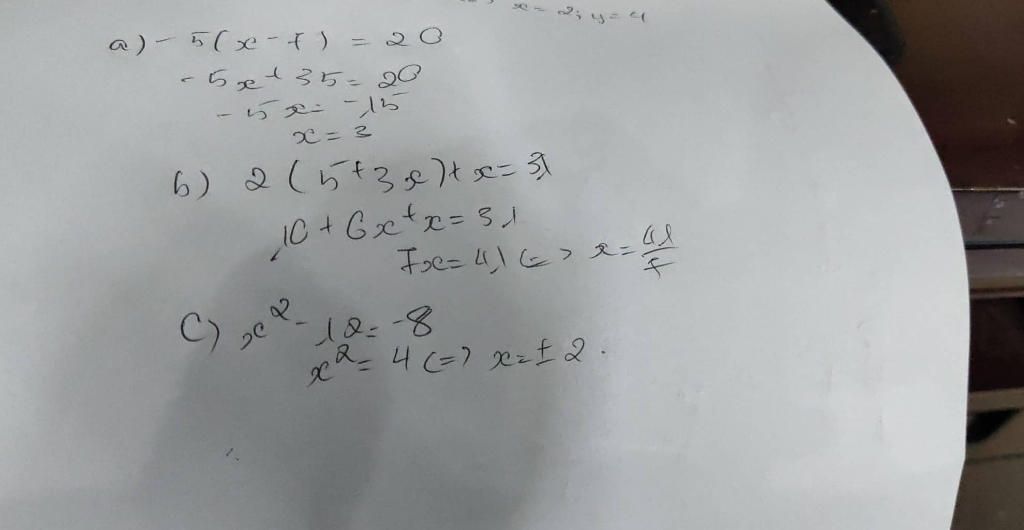 x = 2; y = 4
a) -5(x-7) = 20
-5x + 35 = 20
-5x = -15
x = 3
b) 2(5+3x)+x = 31
10 + 6x + x = 31
7x = 41 <=> x = 41/7
c) x² - 12 = -8
x² = 4 <=> x = ±2.